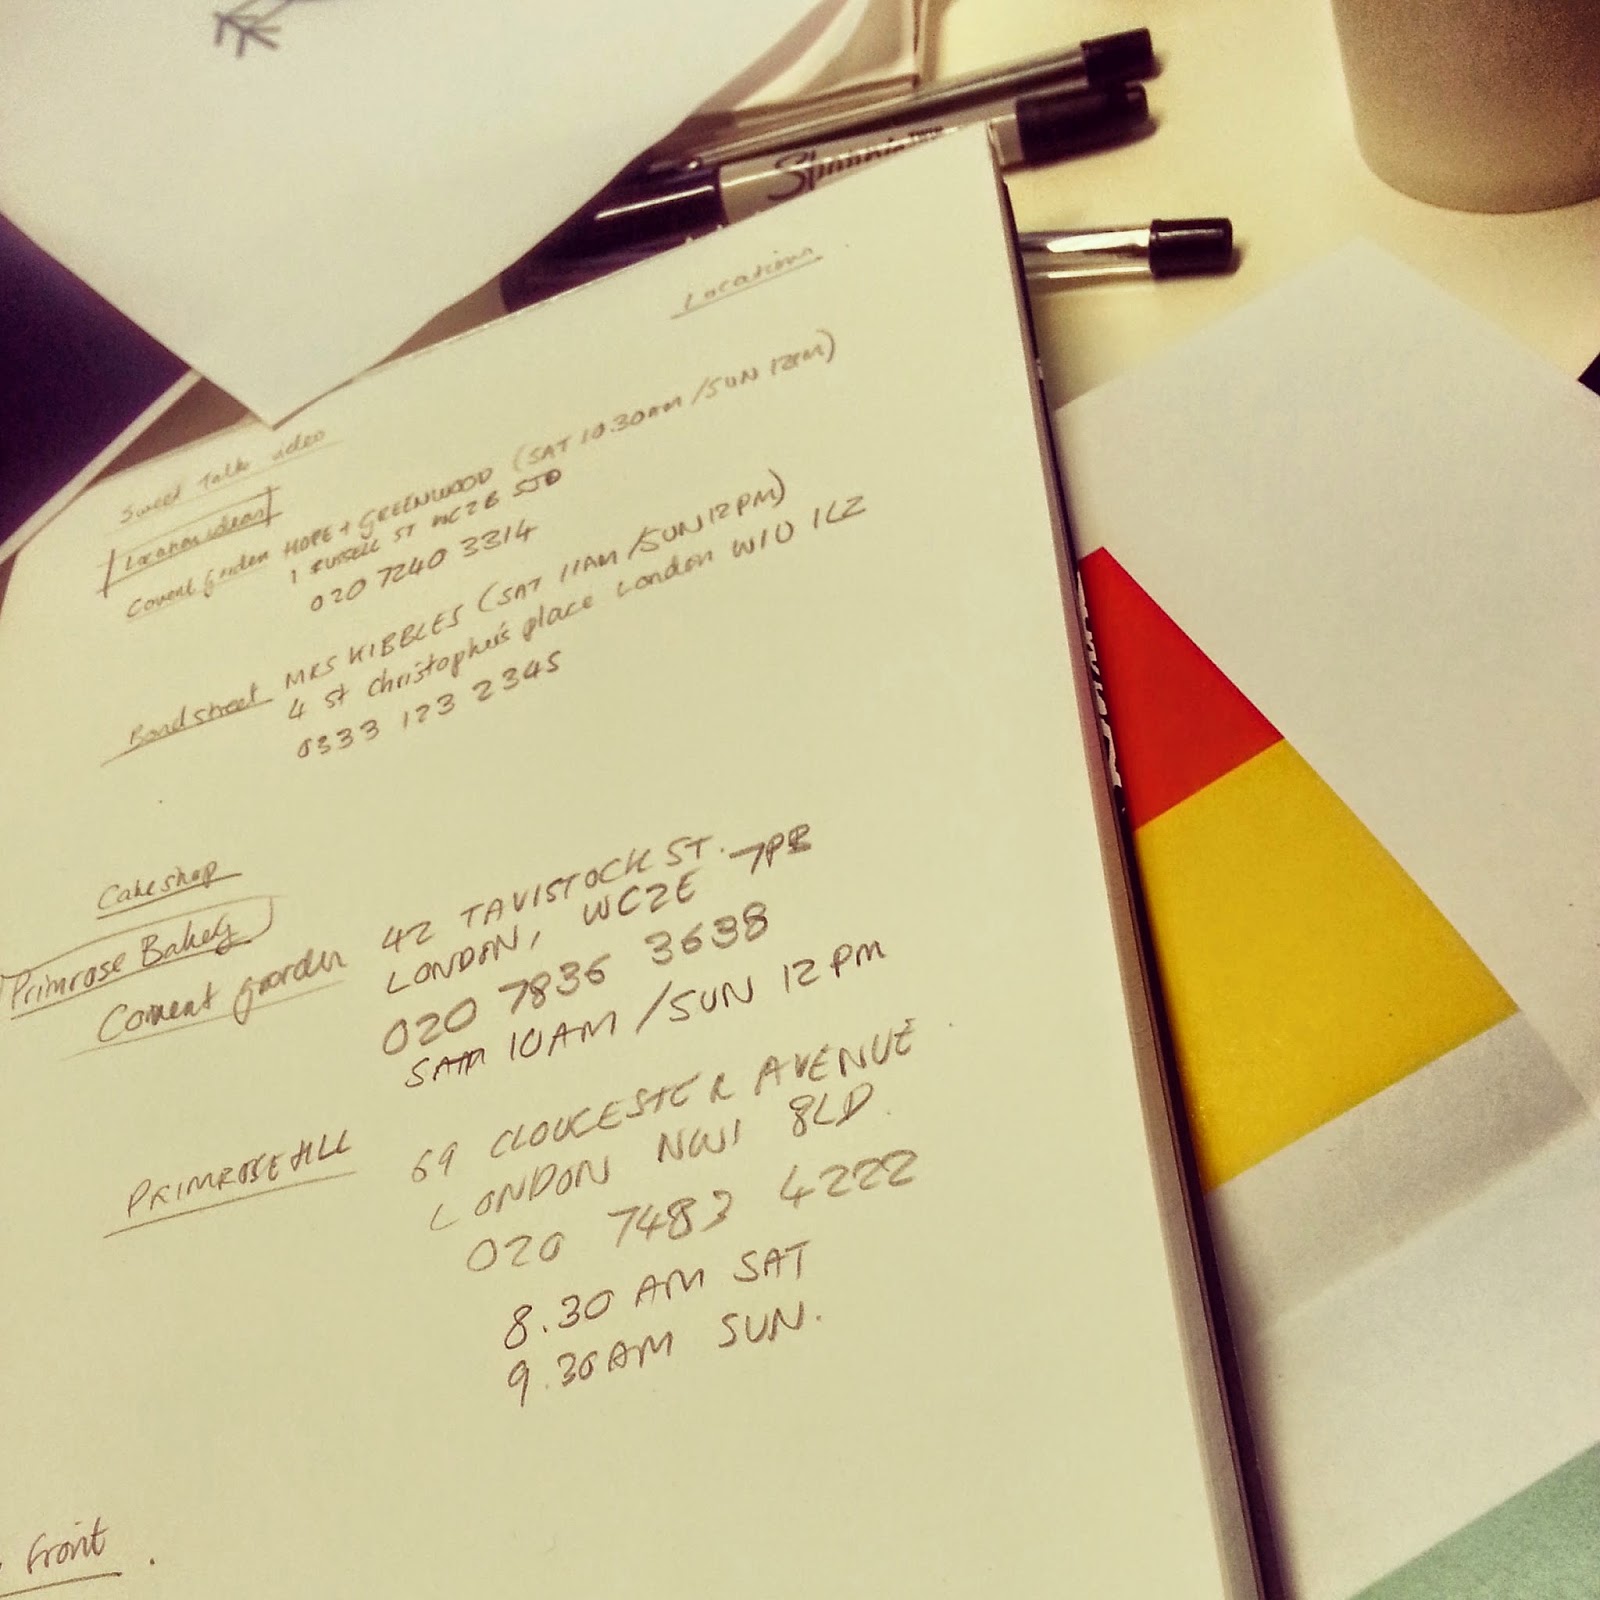 Locations
Sweet Talk video
Location ideas
Covent Garden HOPE + GREENWOOD (SAT 10.30AM / SUN 12PM)
1 RUSSELL ST WC2B 5JD
020 7240 3314
Bond street MRS KIBBLES (SAT 11AM / SUN 12PM)
4 St Christopher's place London W1U 1LZ
0333 123 2345
Cake shop
Primrose Bakery
Covent garden 42 TAVISTOCK ST.
LONDON, WC2E 7PB
020 7836 3638
SAT 10AM / SUN 12PM
PRIMROSE HILL 69 GLOUCESTER AVENUE
LONDON NW1 8LD.
020 7483 4222
8.30 AM SAT
9.30AM SUN.
Front
Sharpie TWIN